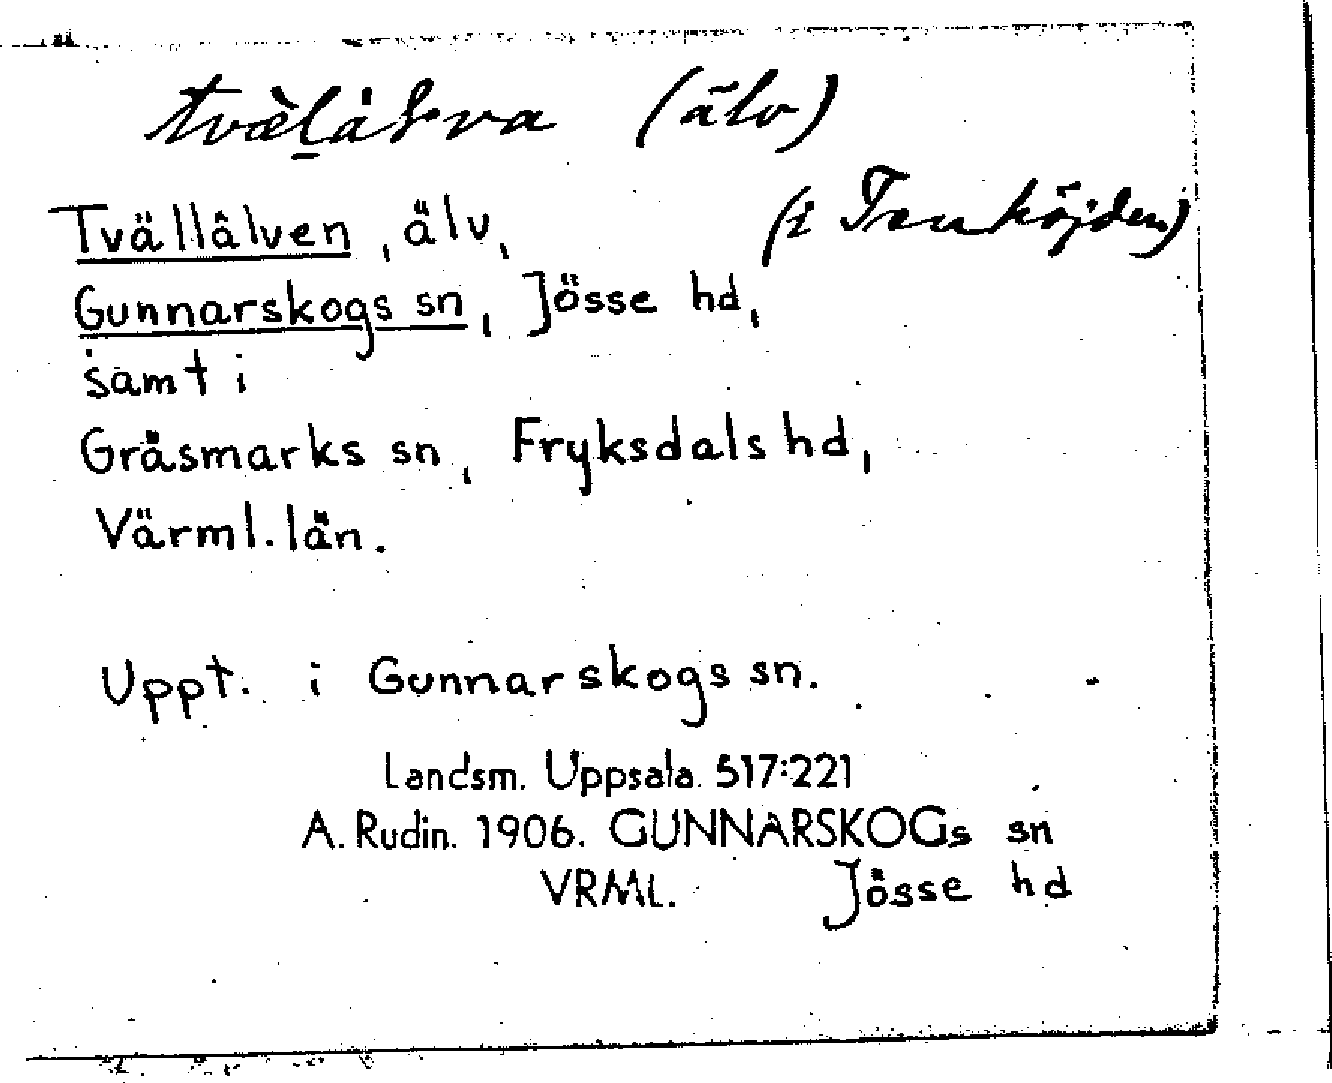 (älv)
Tvällälven, älv, (i Treuhöjden)
Gunnarskogs sn, Jösse hd,
samt i
Gräsmarks sn, Fryksdals hd,
Värml. län.
Uppt. i Gunnarskogs sn.
Landsm. Uppsala. 517:221
A. Rudin. 1906. GUNNARSKOGs sn
VRML. Jösse hd